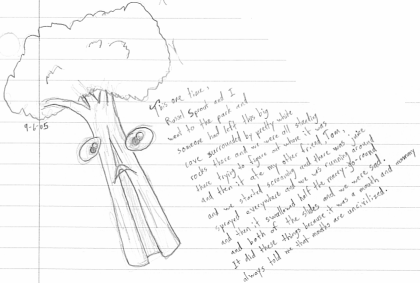 9-6-05
This one time,
Russel Sprout and I
went to the park and
someone had left this big
cave surrounded by pretty white
rocks there and we were all standing
there trying to figure out what it was
and then it ate my other friend, Tom,
and we started screaming and there was juice
sprayed everywhere and we was running around
and then it swallowed half the merry-go-round
and both of the slides and we were sad.
It did these things because it was a mouth and mommy
always told me that mouths are uncivilized.